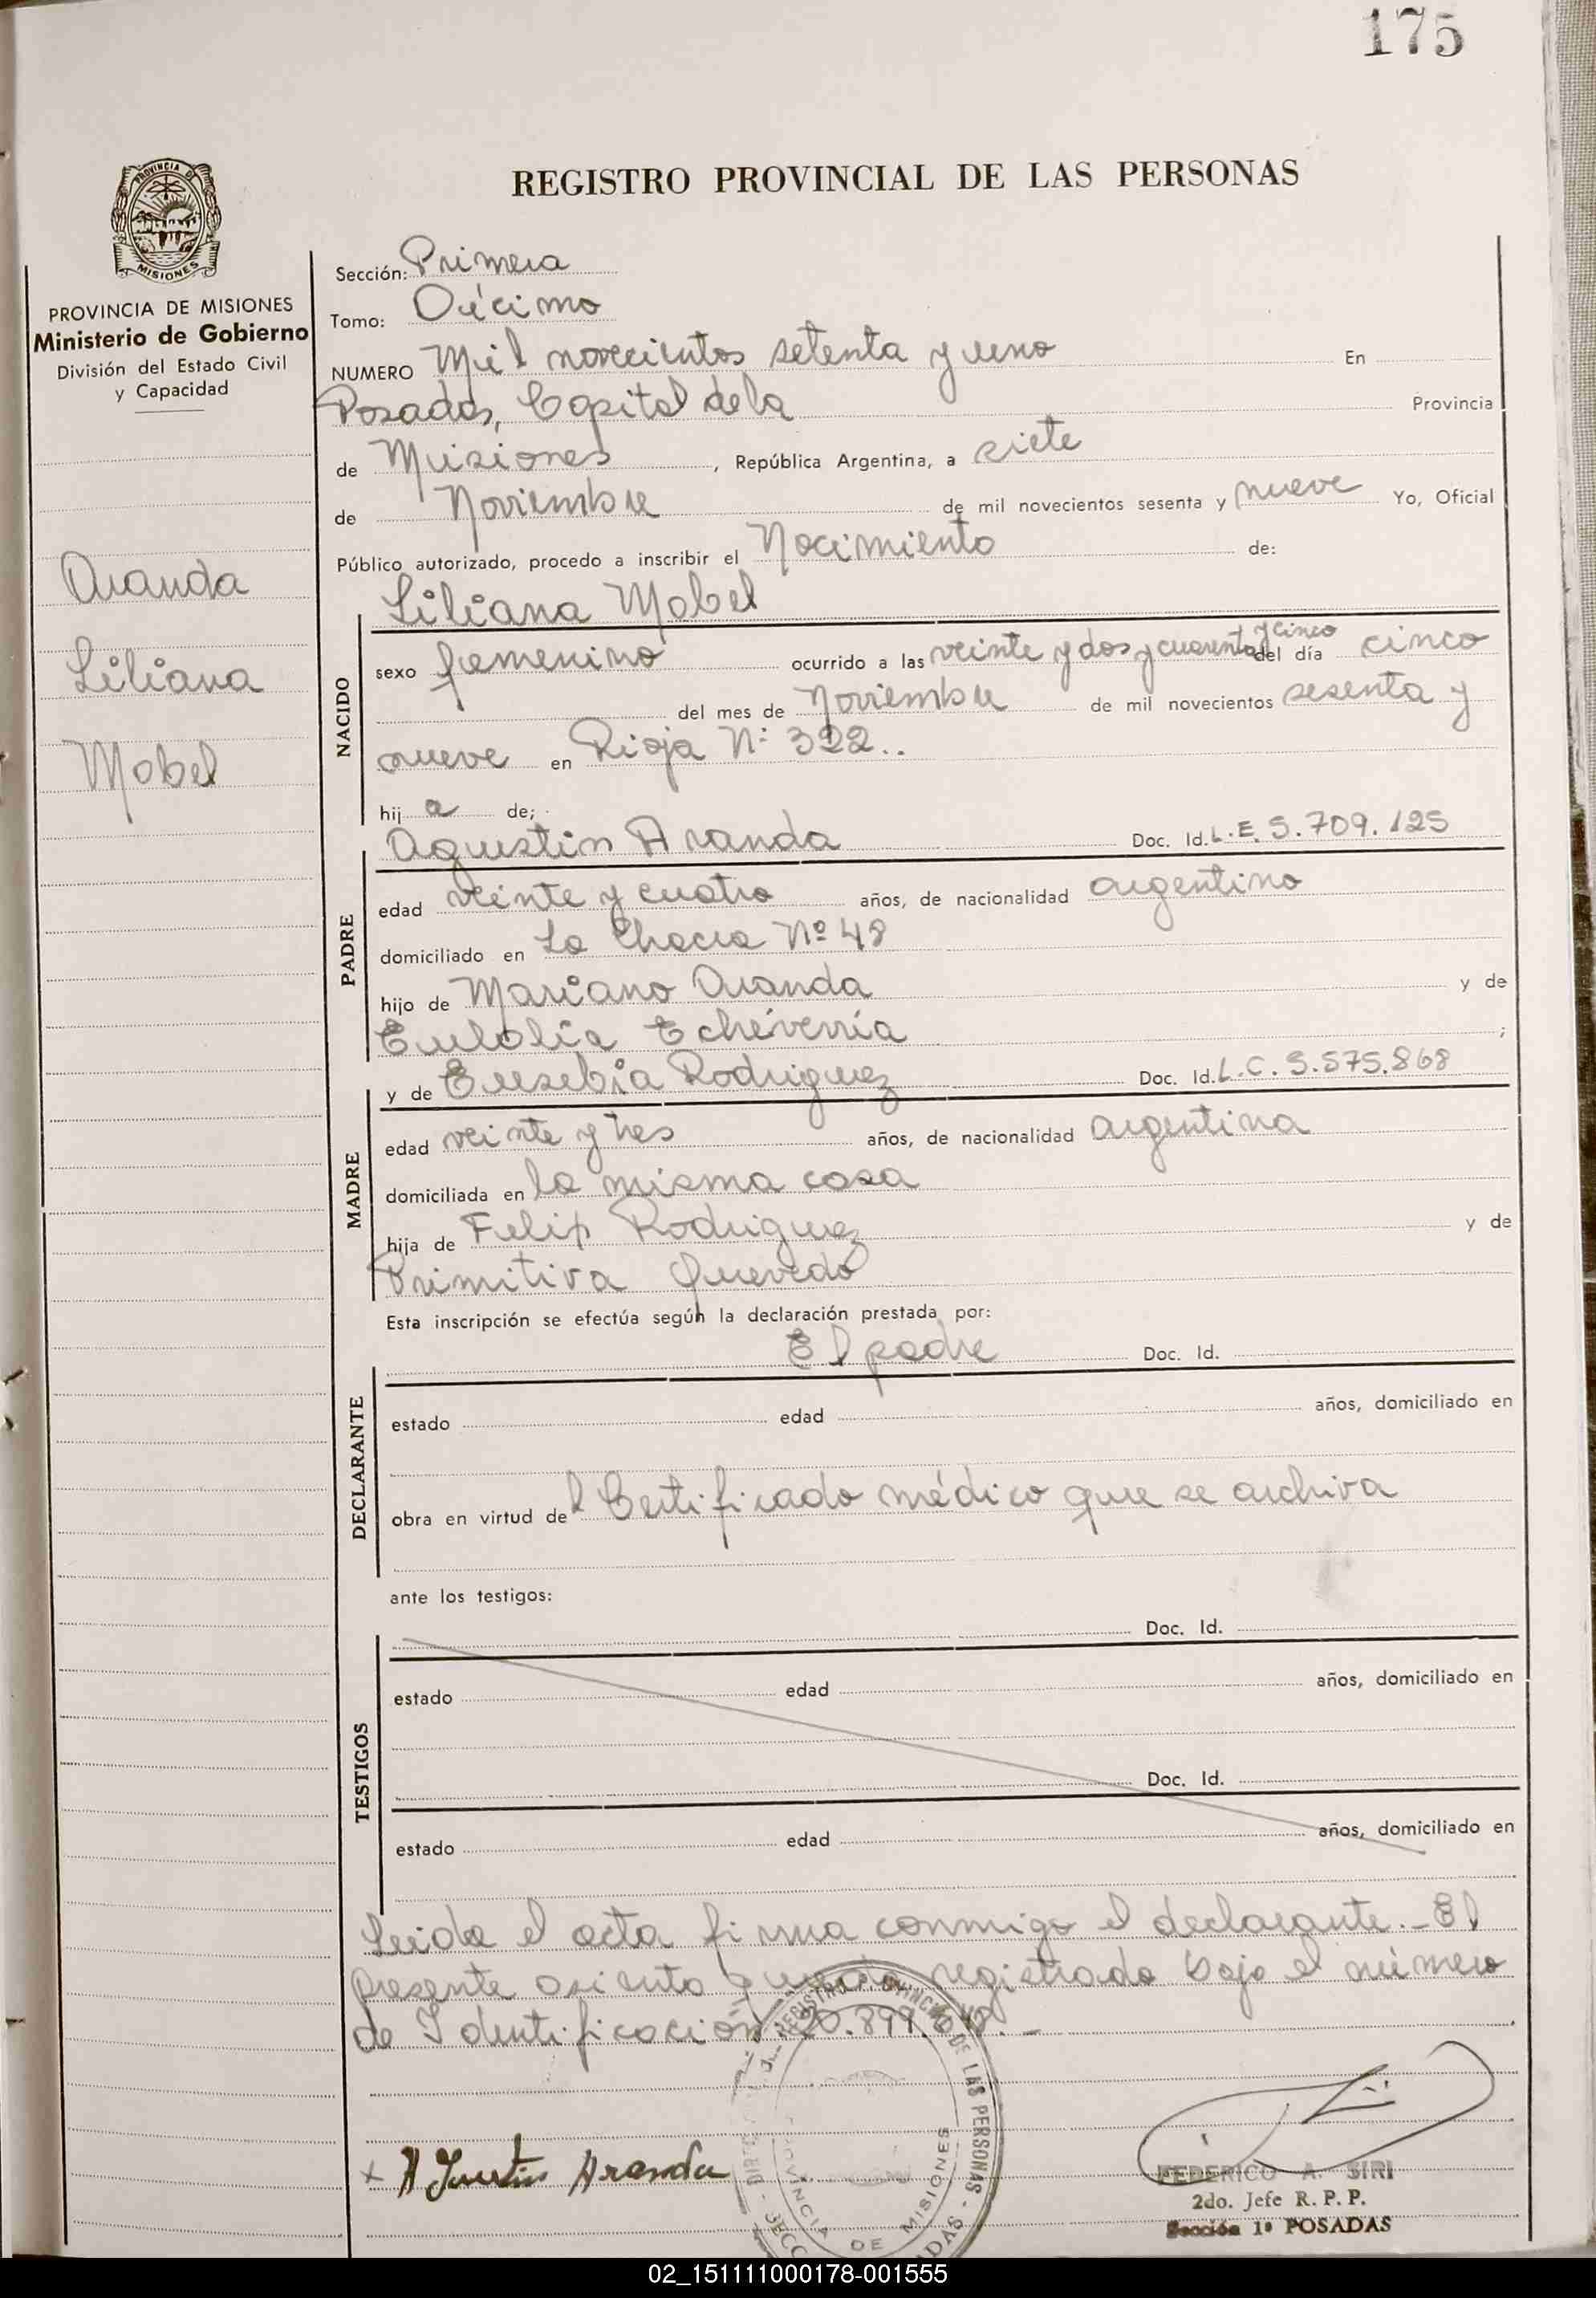 175
PROVINCIA DE
MISIONES
REGISTRO PROVINCIAL DE LAS PERSONAS
PROVINCIA DE MISIONES
Ministerio de Gobierno
División del Estado Civil
y Capacidad
Aranda
Liliana
Mabel
Sección: Primera
Tomo: Décimo
NUMERO Mil novecientos setenta y uno En
Posadas, Capital de la Provincia
de Misiones, República Argentina, a siete
de Noviembre de mil novecientos sesenta y nueve Yo, Oficial
Público autorizado, procedo a inscribir el Nacimiento de:
Liliana Mabel
NACIDO
sexo femenino ocurrido a las veinte y dos y cuarenta y cinco del día cinco
del mes de Noviembre de mil novecientos sesenta y
nueve en Rioja Nº 322..
hij a de;
Agustin Aranda Doc. Id. L.E. 5.709.125
PADRE
edad veinte y cuatro años, de nacionalidad argentino
domiciliado en La Chacra Nº 48
hijo de Mariano Aranda y de
Eulolia Echéverria ;
y de Eusebia Rodriguez Doc. Id. L.C. 5.575.868
MADRE
edad veinte y tres años, de nacionalidad argentina
domiciliada en la misma casa
hija de Felip Rodriguez y de
Primitiva Quevedo
Esta inscripción se efectúa según la declaración prestada por:
El padre Doc. Id.
DECLARANTE
estado edad años, domiciliado en
obra en virtud del Certificado médico que se archiva
ante los testigos:
Doc. Id.
TESTIGOS
estado edad años, domiciliado en
Doc. Id.
estado edad años, domiciliado en
Leida el acta firma conmigo el declarante.- El
presente asiento queda registrado bajo el número
de Identificación 20.899.
REGISTRO PROVINCIAL DE LAS PERSONAS
PROVINCIA DE MISIONES
Agustin Aranda
FEDERICO A. SIRI
2do. Jefe R. P. P.
Sección 1ª POSADAS
02_151111000178-001555